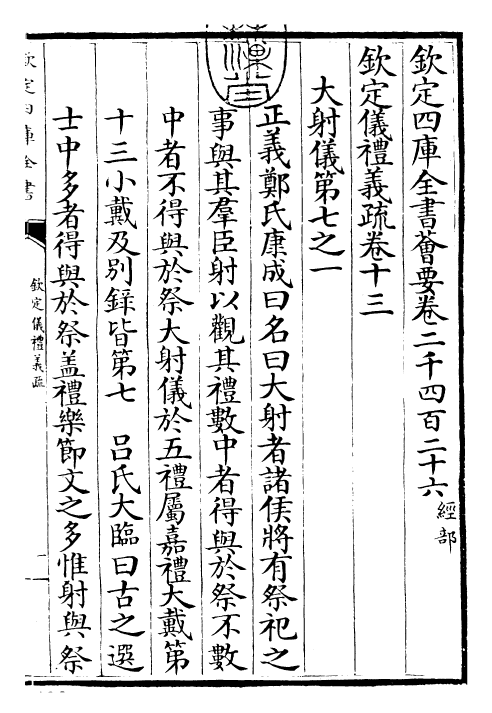 欽定四庫全書薈要卷二千四百二十六 經部
欽定儀禮義疏卷十三
大射儀第七之一
正義鄭氏康成曰名曰大射者諸侯將有祭祀之
事與其羣臣射以觀其禮數中者得與於祭不數
中者不得與於祭大射儀於五禮屬嘉禮大戴第
十三小戴及別錄皆第七 呂氏大臨曰古之選
士中多者得與於祭盖禮樂節文之多惟射與祭
欽定四庫全書
欽定儀禮義疏